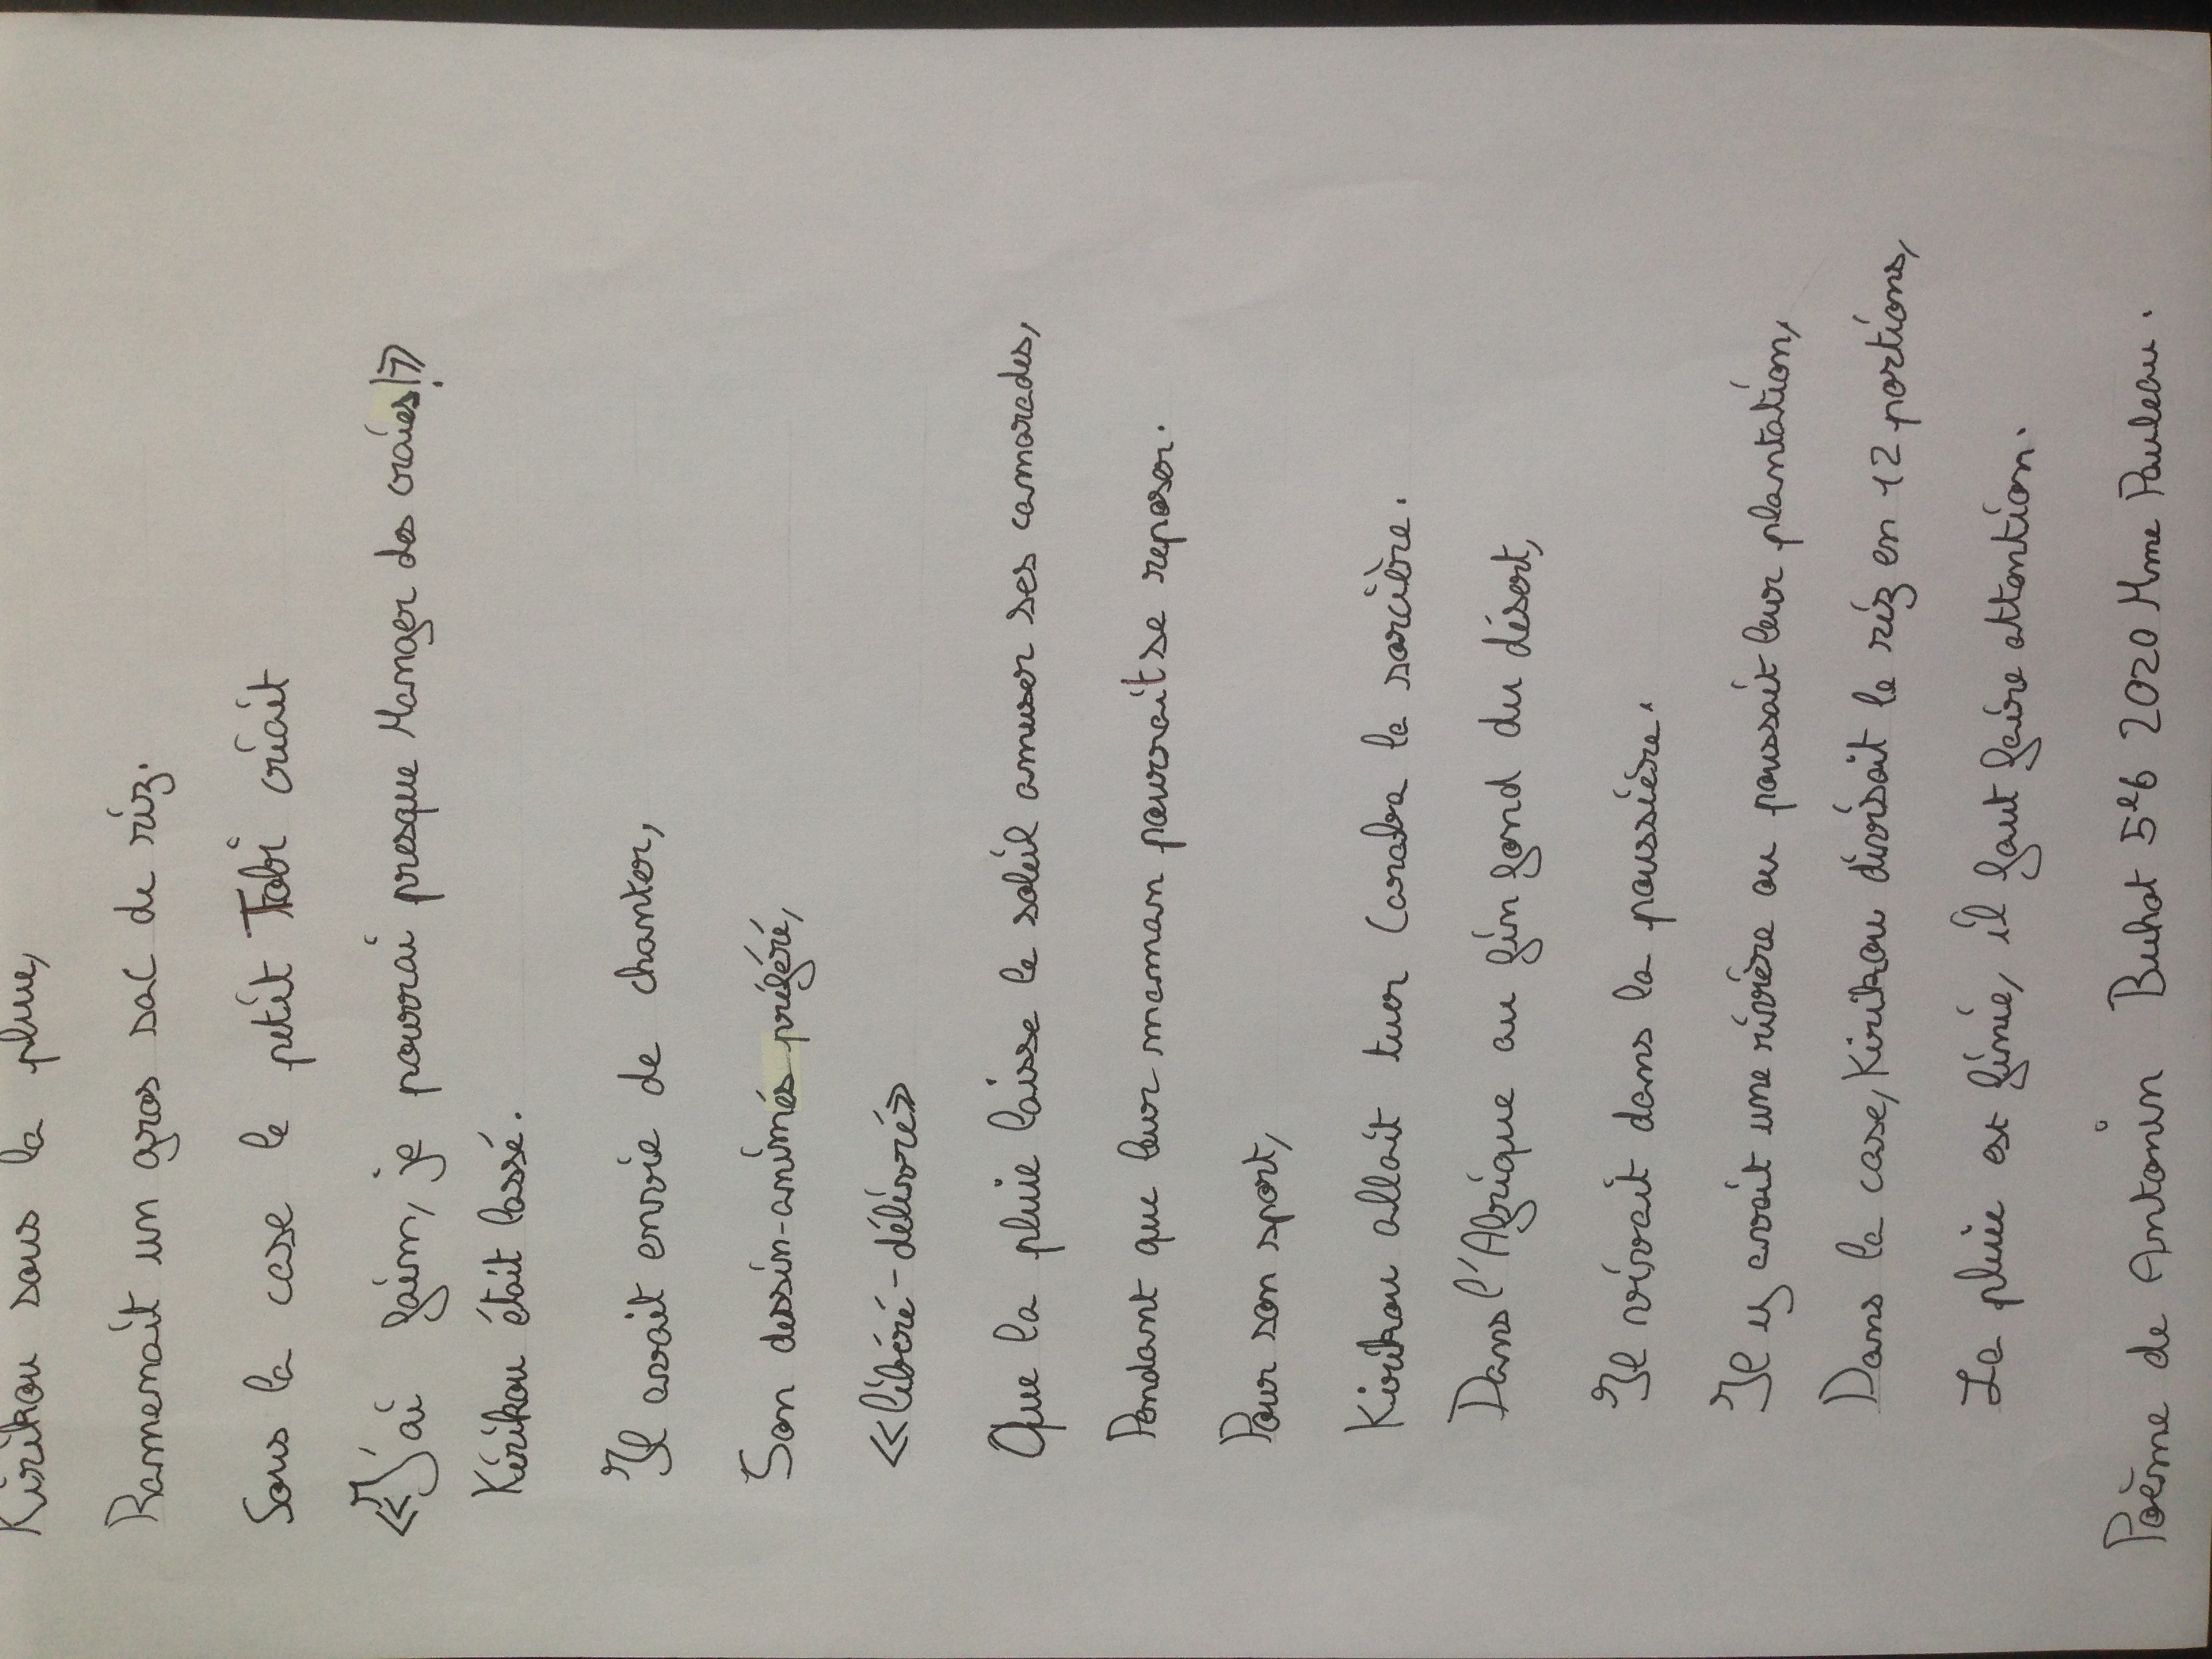 Kirikou sous la pluie,
Ramenait un gros sac de riz.
Sous la case le petit Tobi criait
«J'ai faim, je pourrai presque Manger des craies!»
Kirikou était lassé.
Il avait envie de chanter,
Son dessin-animés préféré,
«libéré-délivré»
Que la pluie laisse le soleil amuser ses camarades,
Pendant que leur maman pourrait se reposer.
Pour son sport,
Kirikou allait tuer Caraba la sorcière.
Dans l'Afrique au fin fond du désert,
Il vivait dans la poussière.
Il y avait une rivière ou poussait leur plantation,
Dans la case, Kirikou divisait le riz en 12 portions,
La pluie est finie, il faut faire attention.
Poème de Antonin Buhot 5e6 2020 Mme Pauleau.